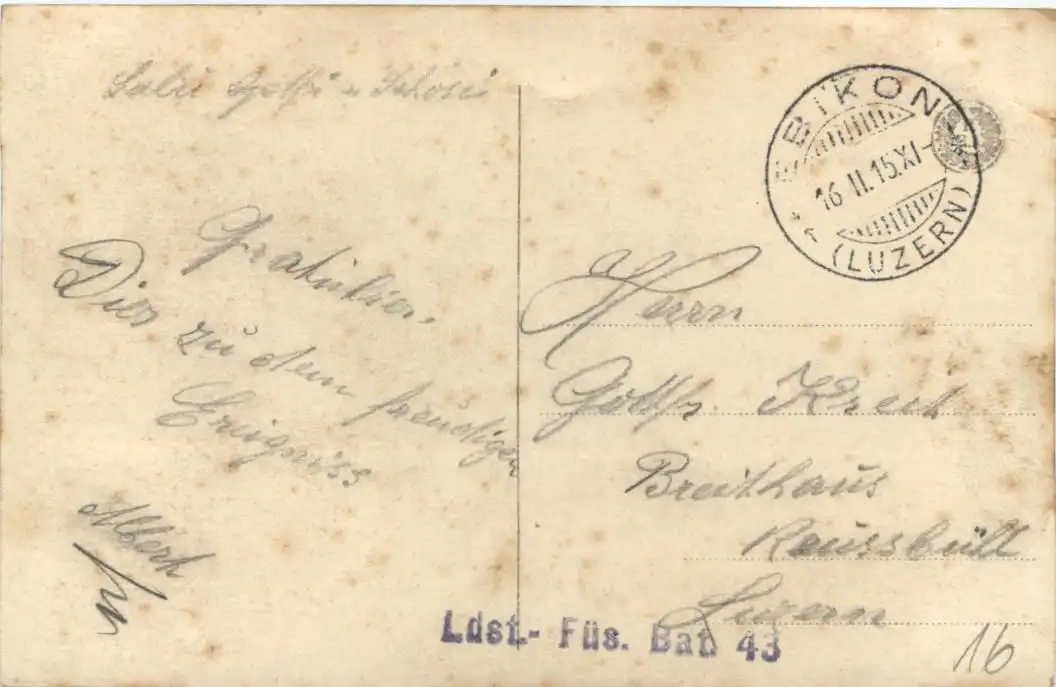 Salü Gottfr. u. Schosi
Gratulier.
Dier zu dem freudigen
Ereigniss
Albert
EBIKON
16 II. 15. XI-
(LUZERN)
Herrn
Gottfr. Kreit
Breithaus
Reussbüll
Luzern
Ldst.- Füs. Bat. 43
16